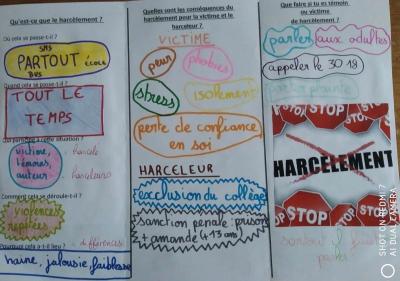 Qu'est-ce que le harcèlement ?
Où cela se passe-t-il ?
SMS
PARTOUT école
BUS
Quand cela se passe-t-il ?
TOUT LE
TEMPS
Qui participe à cette situation ?
victime, - harcelé
témoins,
auteur - harceleurs
Comment cela se déroule-t-il ?
violences
répétées
Pourquoi cela a-t-il lieu ? - différences
haine, jalousie, faiblesse
Quelles sont les conséquences du
harcèlement pour la victime et le
harceleur ?
VICTIME
peur phobies
stress isolement
perte de confiance
en soi
HARCELEUR
exclusion du collège
sanction penale: prison
+ amande (+ 13 ans)
Que faire si tu es témoin
ou victime
de harcèlement ?
parler aux adultes
appeler le 3018
porter plainte
STOP STOP
HARCÈLEMENT
STOP STOP STOP
surtout il faut
parler
SHOT ON REDMI 7
AI DUAL CAMERA